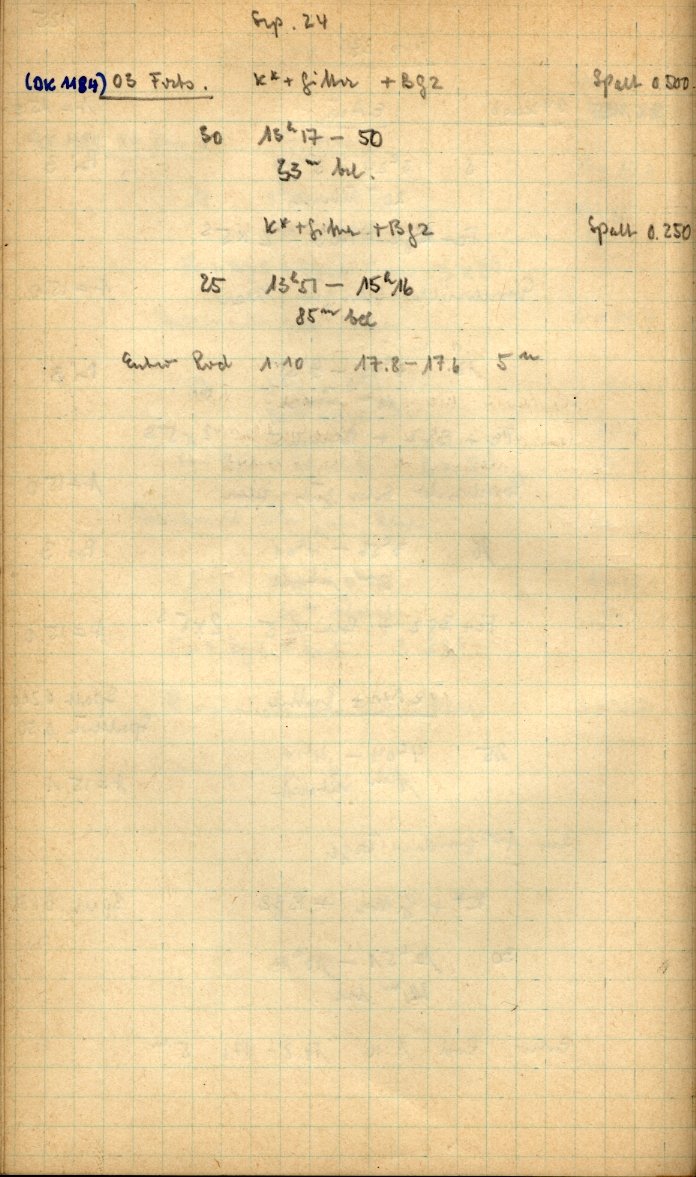 Sep. 24
(OK 1184) 03 Forts. K* + Gitter + Bg2 Spalt 0.500
30 13h17 - 50
33m bel.
K* + Gitter + Bg2 Spalt 0.250
25 13h51 - 15h16
85m bel
Entw Rod 1:10 17.8 - 17.6 5m